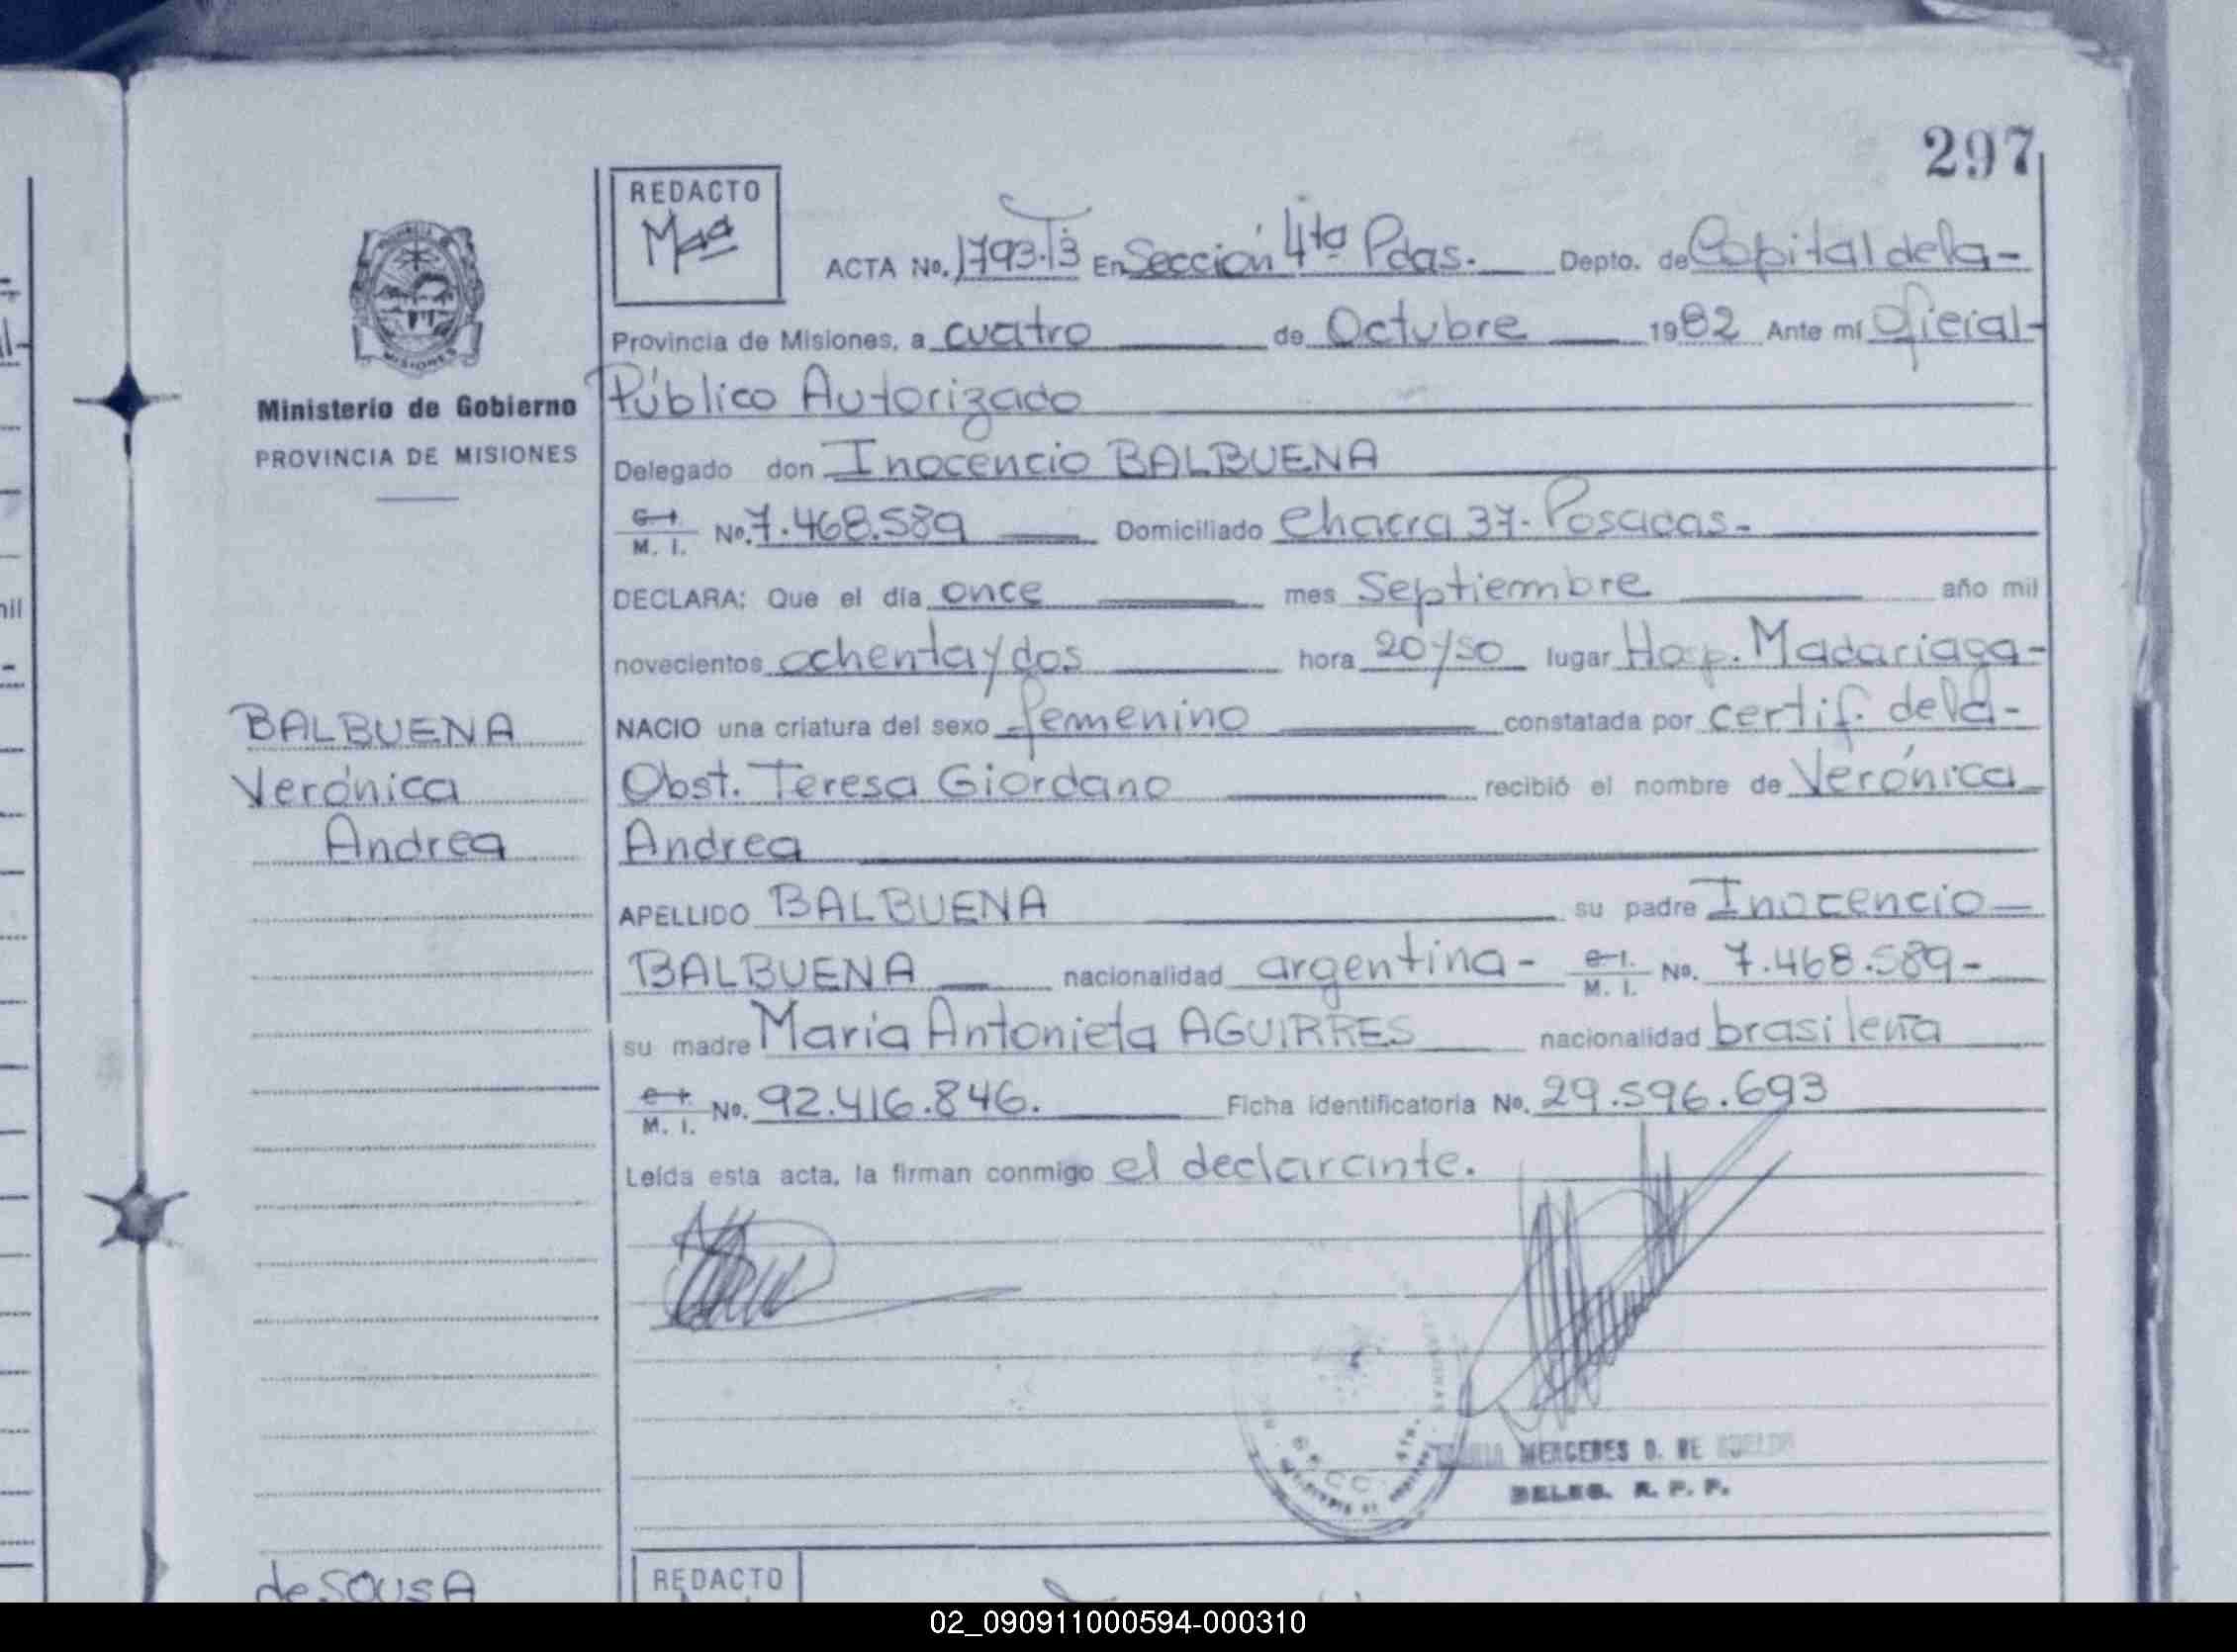 297
REDACTO
ACTA No. 1793.T3 En Sección 4ta Pdas. Depto. de Capital dela-
Provincia de Misiones, a cuatro de Octubre 1982 Ante mí Oficial-
Ministerio de Gobierno
Público Autorizado
PROVINCIA DE MISIONES
Delegado don Inocencio BALBUENA
M. I. No. 7.468.589 Domiciliado Chacra 37- Posadas-
DECLARA: Que el día once mes Septiembre año mil
novecientos ochenta y dos hora 20/50 lugar Hosp. Madariaga-
BALBUENA
NACIO una criatura del sexo femenino constatada por certif. dela-
Verónica
Obst. Teresa Giordano recibió el nombre de Verónica
Andrea
Andrea
APELLIDO BALBUENA su padre Inocencio
BALBUENA nacionalidad argentina- M. I. No. 7.468.589-
su madre María Antonieta AGUIRRES nacionalidad brasileña
M. I. No. 92.416.846. Ficha identificatoria No. 29.596.693
Leída esta acta, la firman conmigo el declarante.
MERCEDES D. DE
DELEG. R. P. P.
de SOUSA
REDACTO
02_090911000594-000310